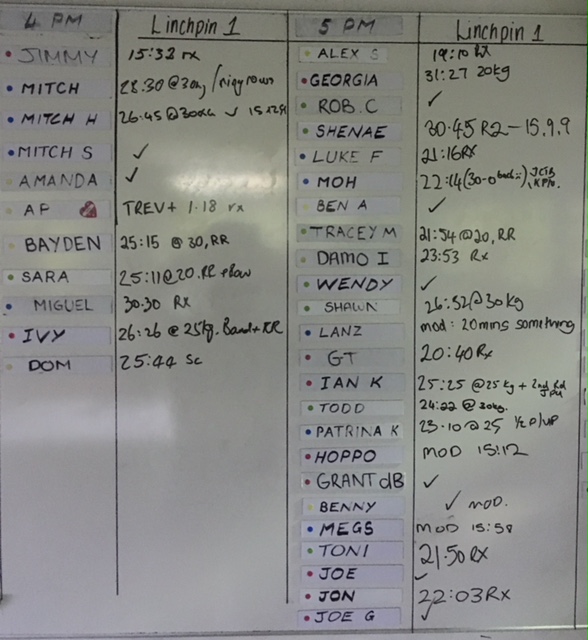 4 PM Linchpin 1
JIMMY 15:32 rx
MITCH 28:30 @30kg / ring rows
MITCH H 26:45 @30kg ✓
MITCH S ✓
AMANDA ✓
AP TREV + 1.18 rx
BAYDEN 25:15 @ 30, RR
SARA 25:11 @20. RR
MIGUEL 30.30 Rx
IVY 26:26 @ 25kg. Band + RR
DOM 25:44 Sc
5 PM Linchpin 1
ALEX S 19:10 RX
GEORGIA 31:27 20kg
ROB. C ✓
SHENAE 30:45 R2 - 15.9.9
LUKE F 21:16 RX
MOH 22:14 (30-0
BEN A ✓
TRACEY M 21:54 @20, RR
DAMO I 23:53 Rx
WENDY ✓
SHAWN 26:52 @ 30kg
LANZ mod: 20mins something
GT 20:40 Rx
IAN K 25:25 @25kg + 2nd Rd
TODD 24:22 @ 30kg.
PATRINA K 23.10 @ 25 1/2 P/UP
HOPPO MOD 15:12
GRANT dB ✓
BENNY ✓ MOD.
MEGS MOD 15:58
TONI 21.50 RX
JOE ✓
JON 22:03 RX
JOE G ✓